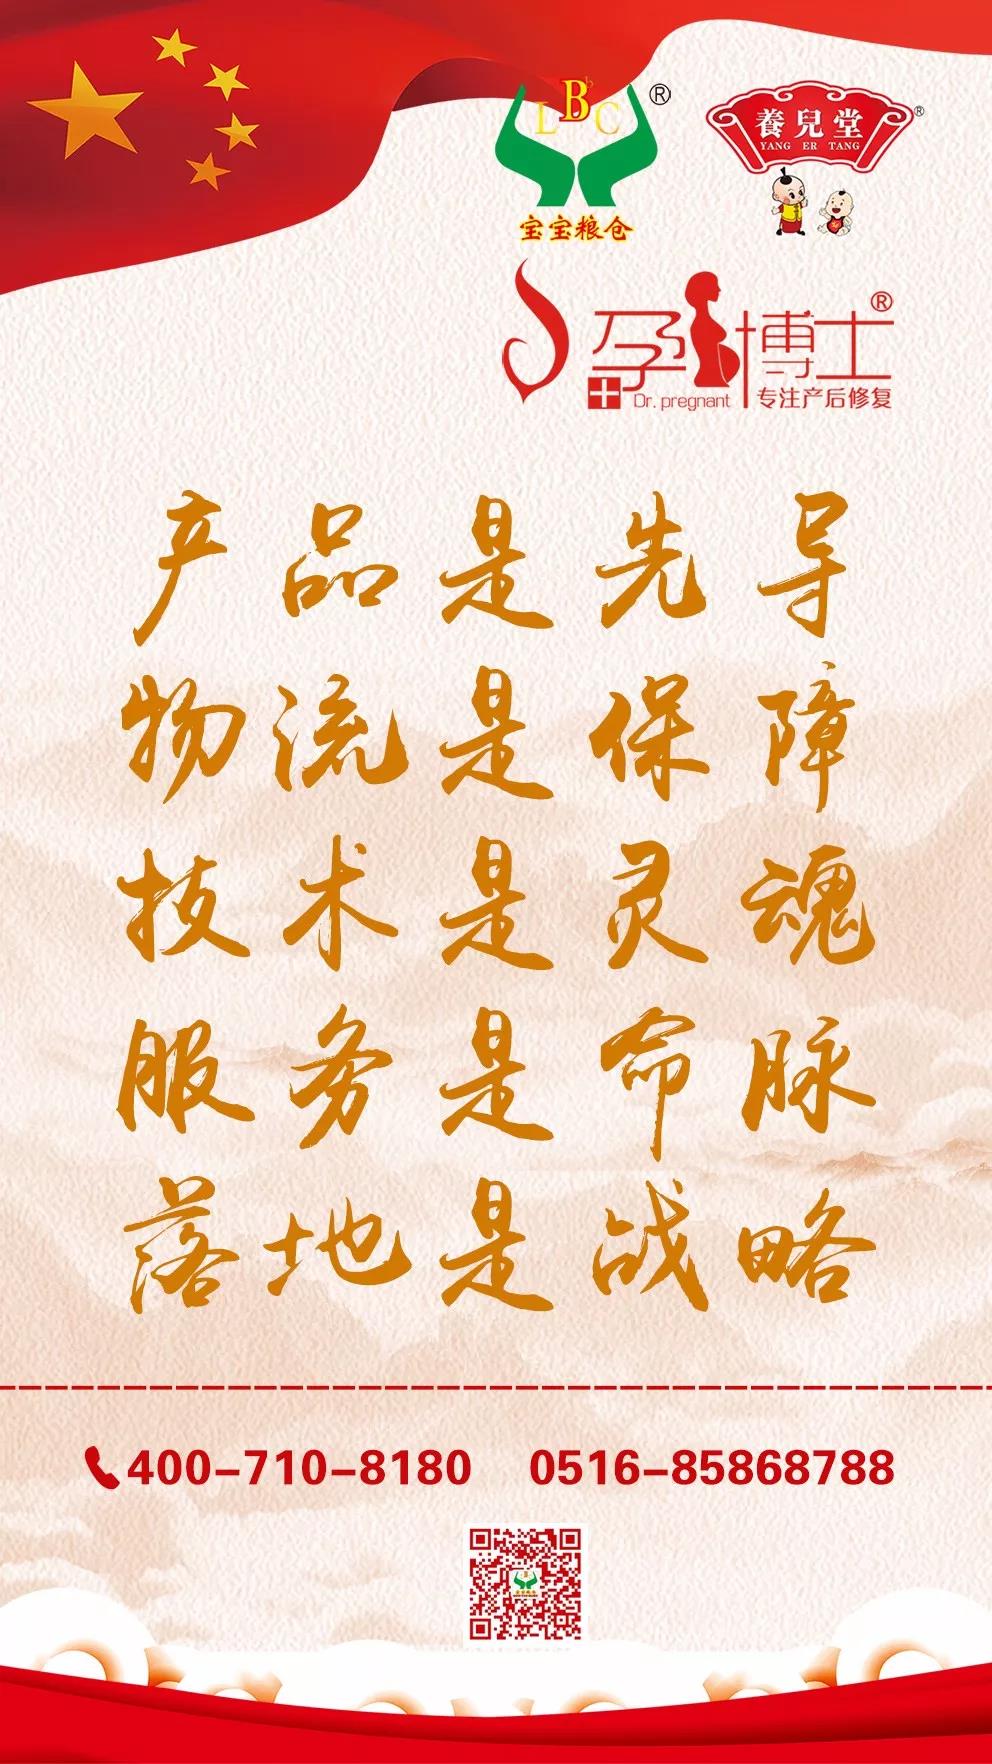 BBLC®
宝宝粮仓
養兒堂®
YANG ER TANG
孕博士®
Dr. pregnant 专注产后修复
产品是先导
物流是保障
技术是灵魂
服务是命脉
落地是战略
400-710-8180 0516-85868788